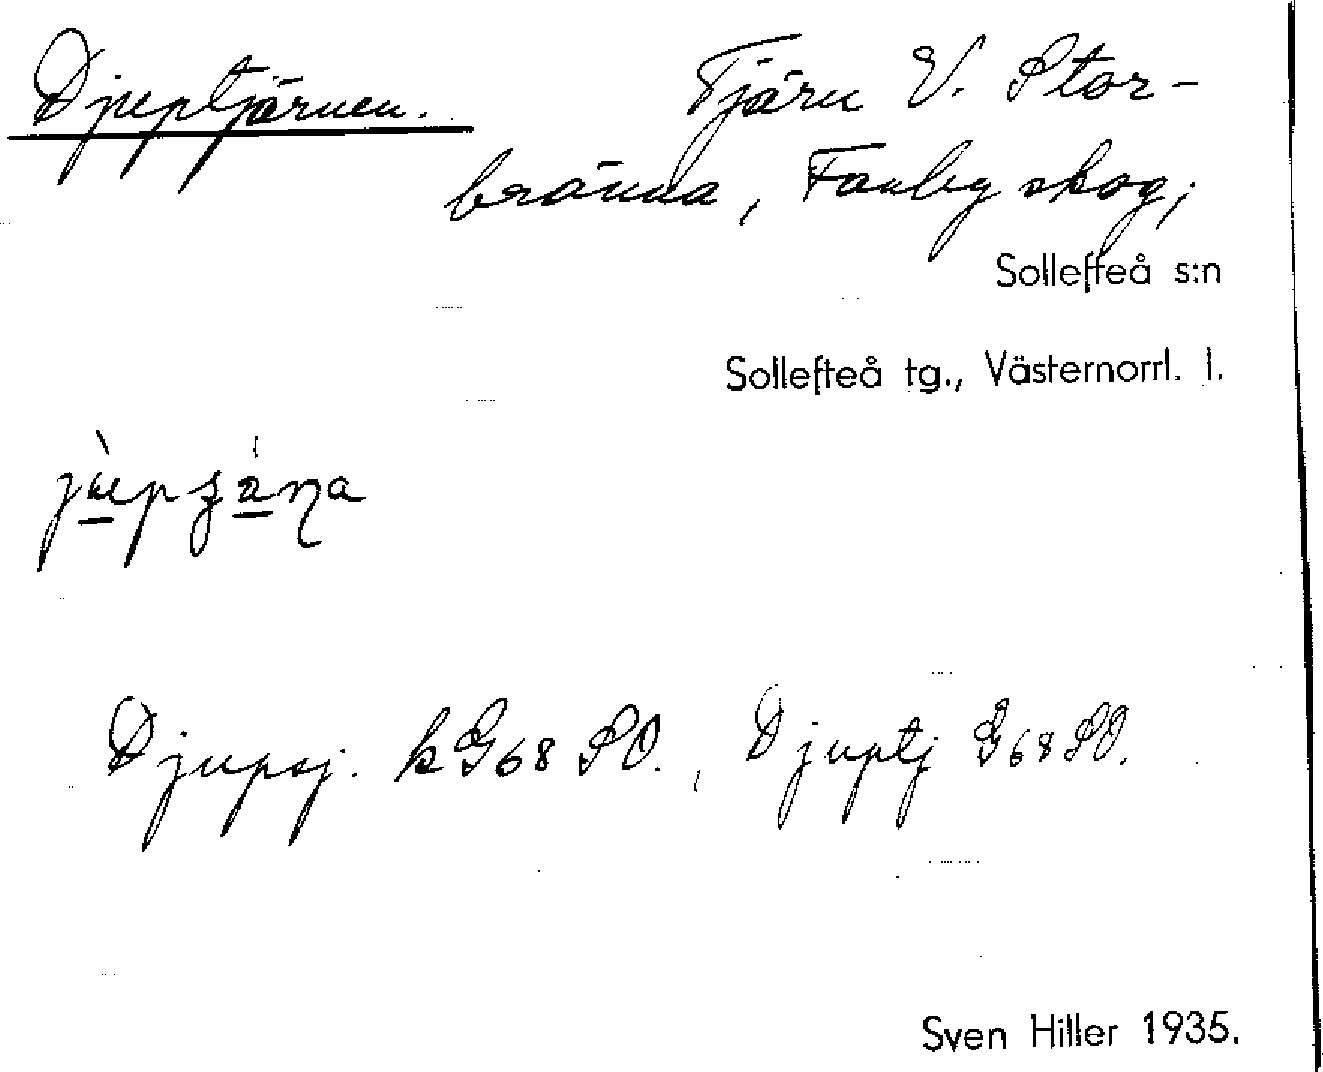 Djuptjärnen. Tjärn V. Stor-
bränna, Fanbyskog,
Sollefteå s:n
Sollefteå tg., Västernorrl. l.
Djupsj. kG68 SO., Djuptj G68 SO.
Sven Hiller 1935.